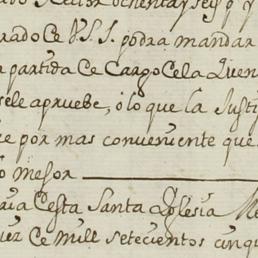 ochenta y seis p.s y
rado Ce V.S.S. podra mandar
partida Ce Cargo Cela Quen
sele apruebe, ò lo que la Justi
e por mas conveniente que
mejor
Cesta Santa Iglesia Me
iez Ce mill setecientos cinqu